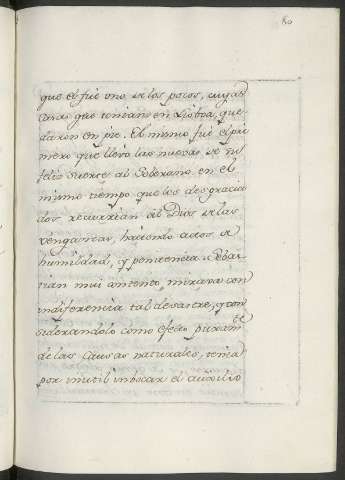 80
que el fue uno de los pocos, cuyas
casas que tenian en Lisboa, que-
daron en pie. El mismo fue el pri
mero que llevò las nuevas de su
feliz suerte al Soberano en el
mismo tiempo que los desgracia
dos recurrian al Dios de las
venganzas, haciendo actos de
humildad, y penitencia. Sebas-
tian mui contento, mirava con
indiferencia tal desastre, y con
siderandolo como efecto puramte
de las Causas naturales, tenia
por inutil imbocar el auxilio